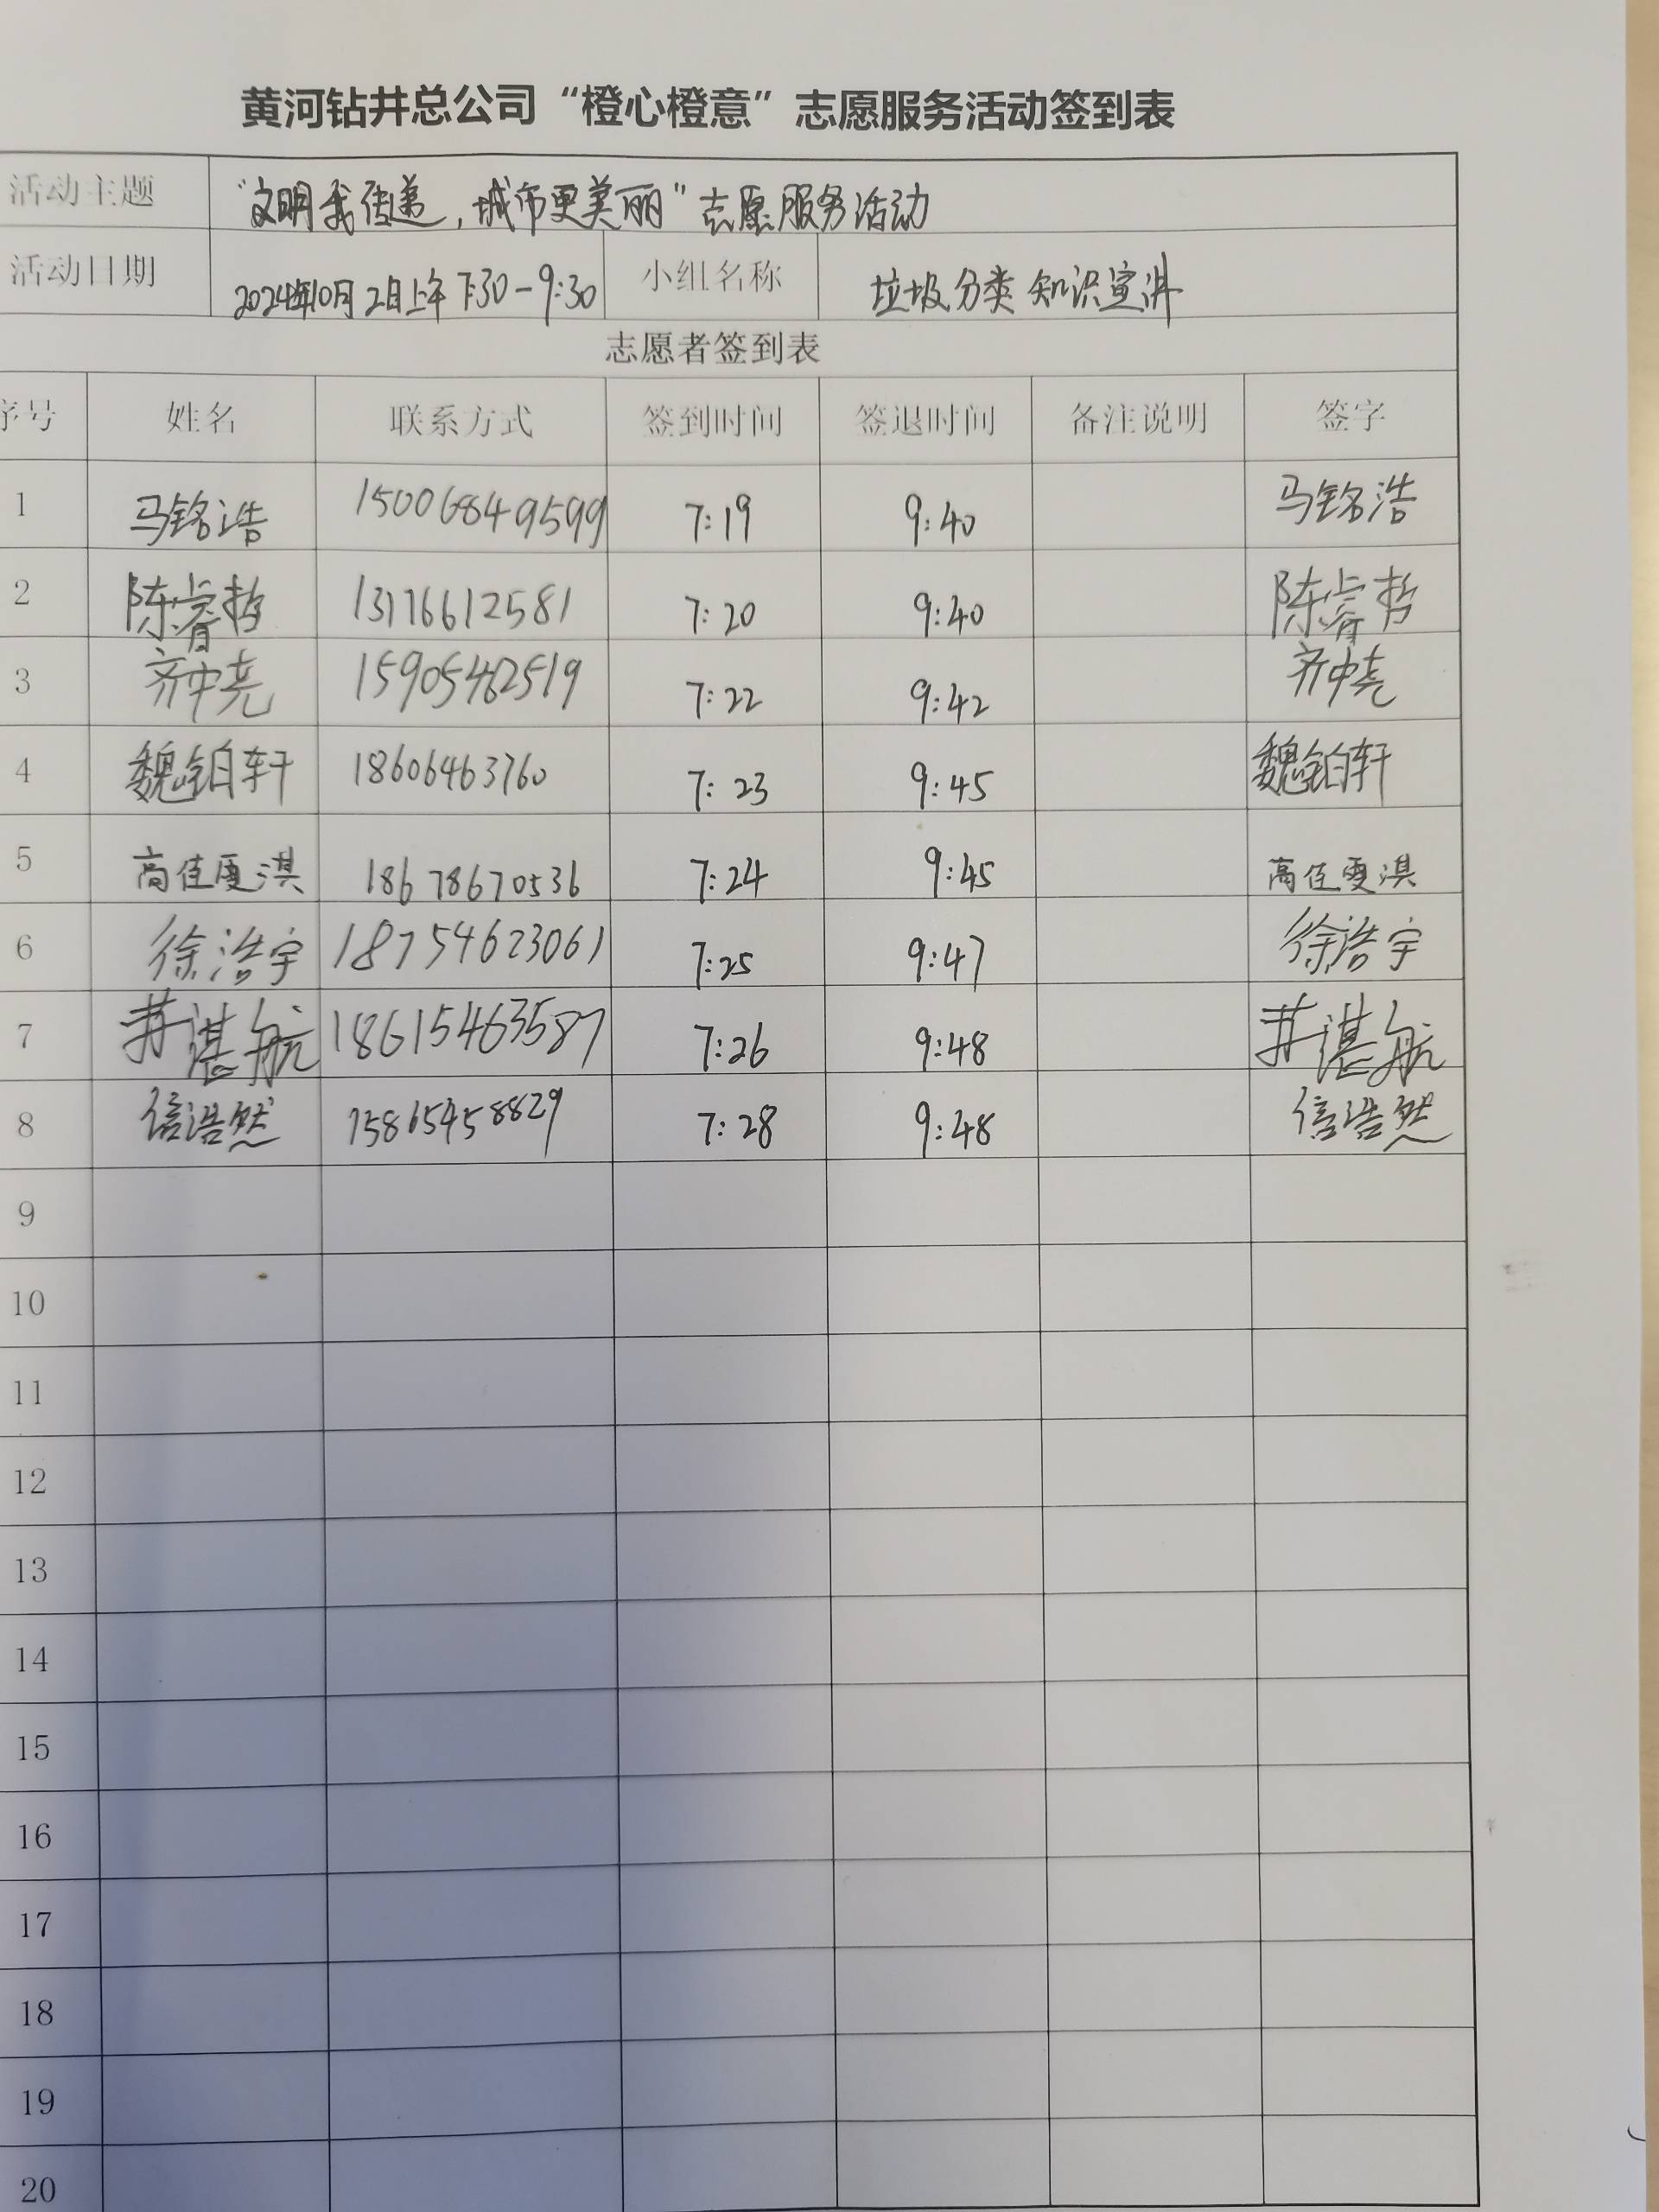 黄河钻井总公司“橙心橙意”志愿服务活动签到表
活动主题 “文明我传递，城市更美丽”志愿服务活动
活动日期 2024年10月2日上午7:30-9:30 小组名称 垃圾分类知识宣讲
志愿者签到表
序号 姓名 联系方式 签到时间 签退时间 备注说明 签字
1 马铭浩 15006849599 7:19 9:40 马铭浩
2 陈睿哲 13176612581 7:20 9:40 陈睿哲
3 齐中尧 15905462519 7:22 9:42 齐中尧
4 魏铂轩 18606463760 7:23 9:45 魏铂轩
5 高佳雯淇 18678670536 7:24 9:45 高佳雯淇
6 徐浩宇 18754623061 7:25 9:47 徐浩宇
7 湛航 18615463587 7:26 9:48 湛航
8 信浩然 15865458829 7:28 9:48 信浩然
9
10
11
12
13
14
15
16
17
18
19
20